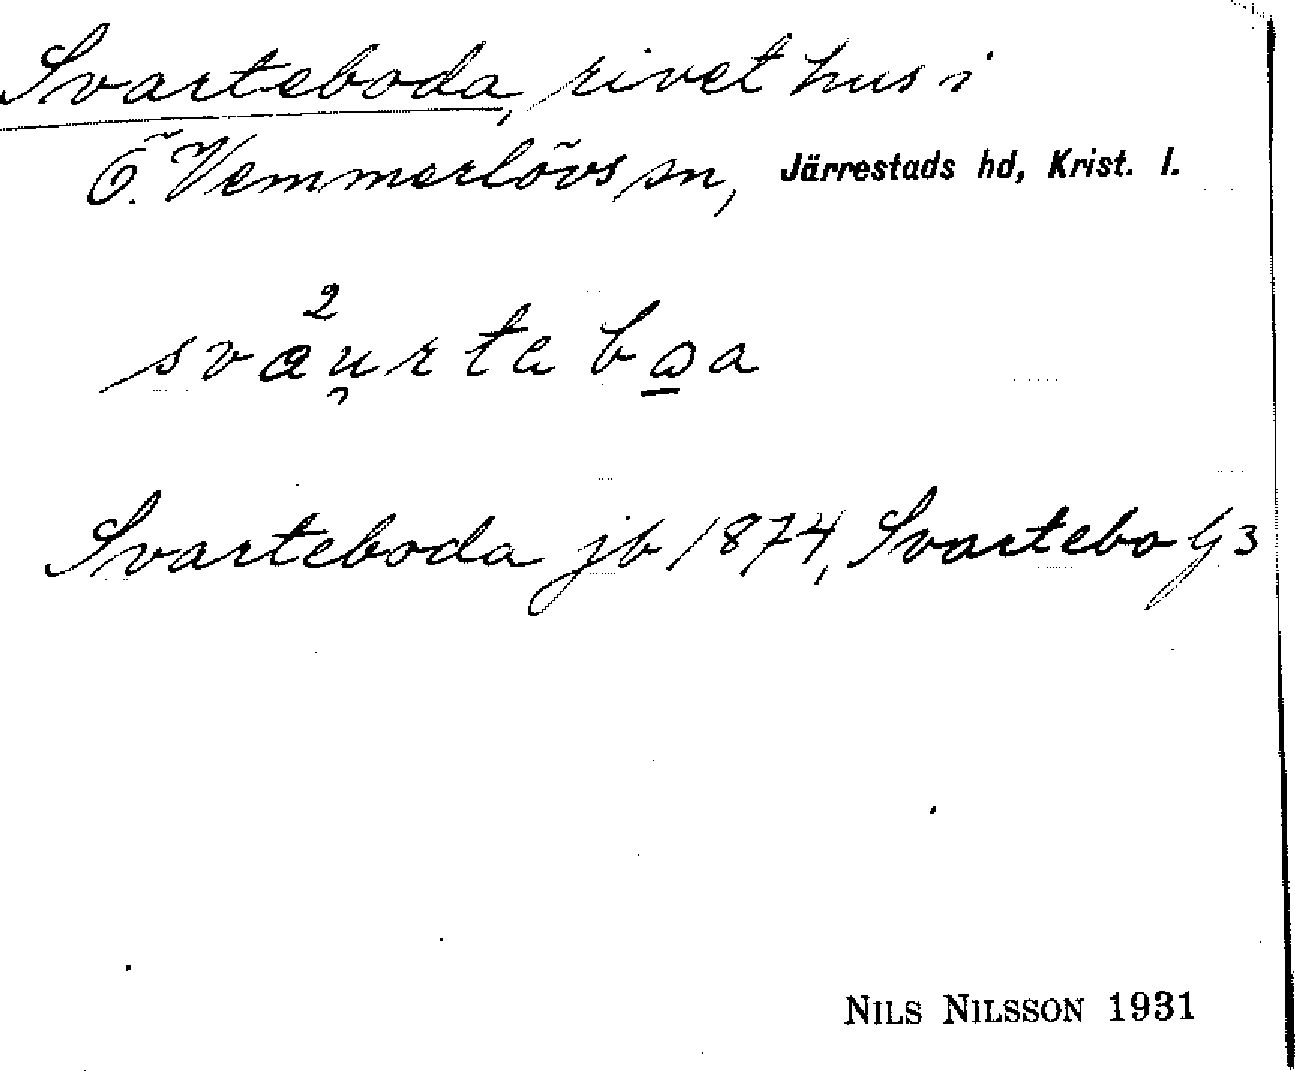 Svarteboda, rivet hus i
Ö. Vemmerlövs sn, Järrestads hd, Krist. l.
2
svau̯rta bo̲a
Svarteboda jb 1874, Svartebo G3
NILS NILSSON 1931